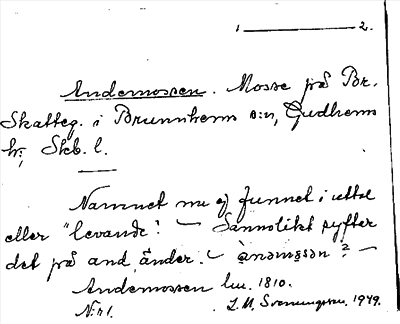 1 ——— 2.
Andemossen. Mosse på Br.
Skatteg. i Brunnhem s:n, Gudhems
hr; Skb. l.
Namnet nu ej funnet i uttal
eller "levande". — Sannolikt syftar
det på and, änder. —
Andemossen lm. 1810.
N:r 1. L. M. Svenungsson. 1949.